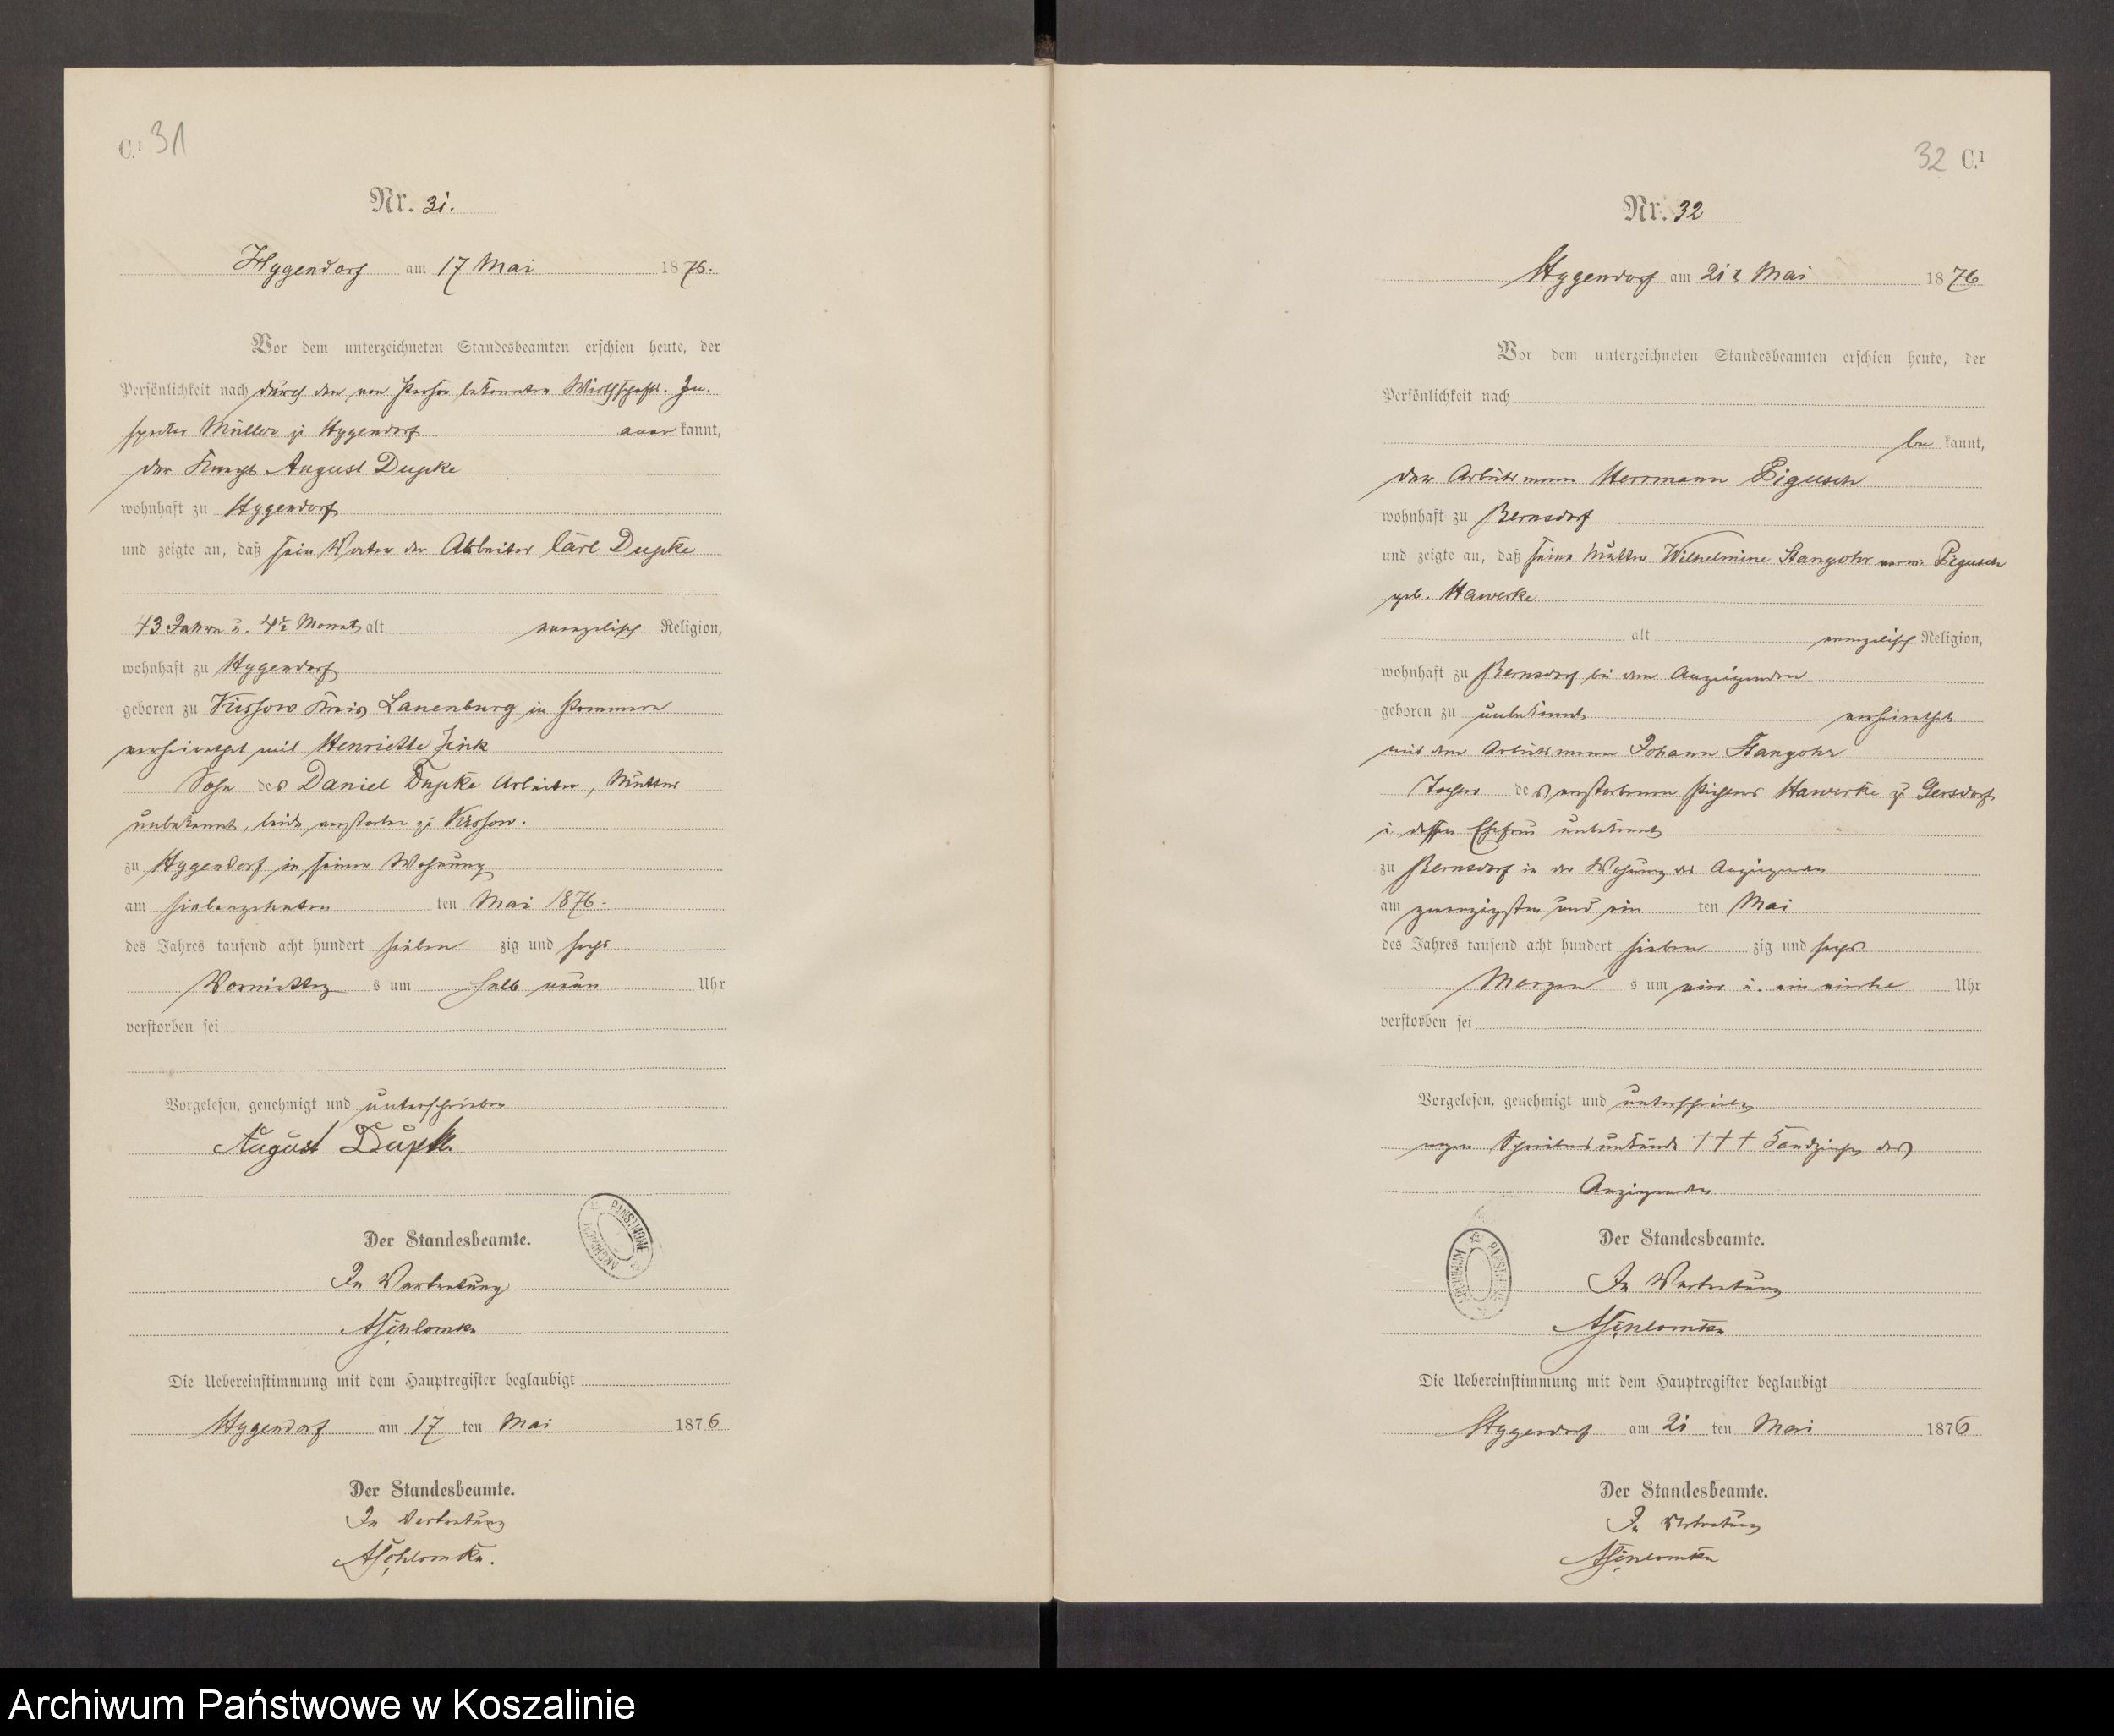 C.¹ 31
Nr. 31.
Hygendorf am 17 Mai 1876.
Vor dem unterzeichneten Standesbeamten erschien heute, der
Persönlichkeit nach durch den von Person bekannten Wirthschafts-In-
spector Müller zu Hygendorf anerkannt,
der Knecht August Dupke
wohnhaft zu Hygendorf
und zeigte an, daß sein Vater der Arbeiter Carl Dupke
43 Jahre u. 4½ Monat alt evangelisch Religion,
wohnhaft zu Hygendorf
geboren zu Vissow Kreis Lauenburg in Pommern
verheirathet mit Henriette Zink
Sohn des Daniel Dupke Arbeiter, Mutter
unbekannt, beide verstorben zu Vissow.
zu Hygendorf in seiner Wohnung
am siebenzehnten ten Mai 1876.
des Jahres tausend acht hundert sieben zig und sechs
Vormittag s um halb neun Uhr
verstorben sei
Vorgelesen, genehmigt und unterschrieben
August Dupke
Der Standesbeamte.
In Vertretung
Die Uebereinstimmung mit dem Hauptregister beglaubigt
Hygendorf am 17 ten Mai 1876
Der Standesbeamte.
In Vertretung
32 C.¹
Nr. 32
Hygendorf am 21 Mai 1876
Vor dem unterzeichneten Standesbeamten erschien heute, der
Persönlichkeit nach
be kannt,
der Arbeitsmann Herrmann Pigusch
wohnhaft zu Bernsdorf
und zeigte an, daß seine Mutter Wilhelmine Stangohr verw. Pigusch
geb. Hawerke
alt evangelisch Religion,
wohnhaft zu Bernsdorf bei dem Anzeigenden
geboren zu unbekannt verheirathet
mit dem Arbeitsmann Johann Stangohr
Tochter des verstorbenen Hawerke zu Gersdorf
u. dessen Ehefrau unbekannt
zu Bernsdorf in der Wohnung des Anzeigenden
am zwanzigsten und ein ten Mai
des Jahres tausend acht hundert sieben zig und sechs
Morgen s um vier u. ein viertel Uhr
verstorben sei
Vorgelesen, genehmigt und unterschrieben
wegen Schreibensunkunde +++ Handzeichen des
Anzeigenden
Der Standesbeamte.
In Vertretung
Die Uebereinstimmung mit dem Hauptregister beglaubigt
Hygendorf am 21 ten Mai 1876
Der Standesbeamte.
In Vertretung
Archiwum Państwowe w Koszalinie